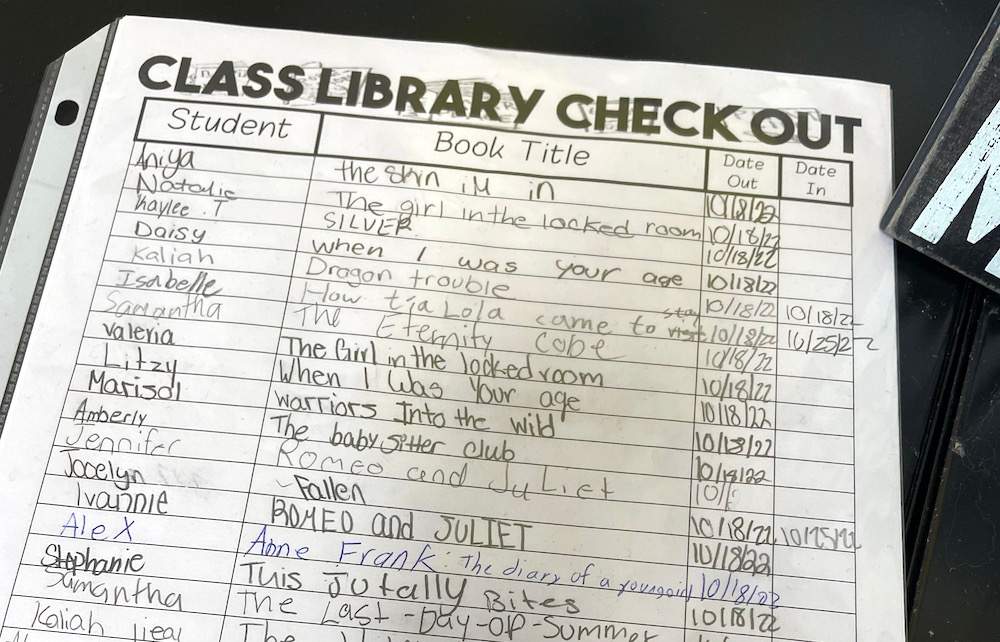 CLASS LIBRARY CHECK OUT
Student Book Title Date Out Date In
Aniya the skin iM in 10/18/22
Natalie The girl in the locked room 10/18/22
Kaylee.T SILVER 10/18/22
Daisy when I was your age 10/18/22
Kaliah Dragon trouble 10/18/22 10/18/22
Isabelle How tía Lola came to stay 10/18/22
Samantha The Eternity Cobe 10/18/22
Valeria The Girl in the locked room 10/18/22
Litzy When I Was Your age 10/18/22
Marisol warriors Into the wild 10/18/22
Amberly The baby sitter club 10/18/22
Jennifer Romeo and Juliet
Jocelyn Fallen 10/18/22 10/25/22
Ivannie ROMEO and JULIET 10/18/22
Alex Anne Frank: The diary of a 10/18/22
Stephanie Tuis Jutally Bites 10/18/22
Samantha The Last-Day-Of-Summer
Kaliah The